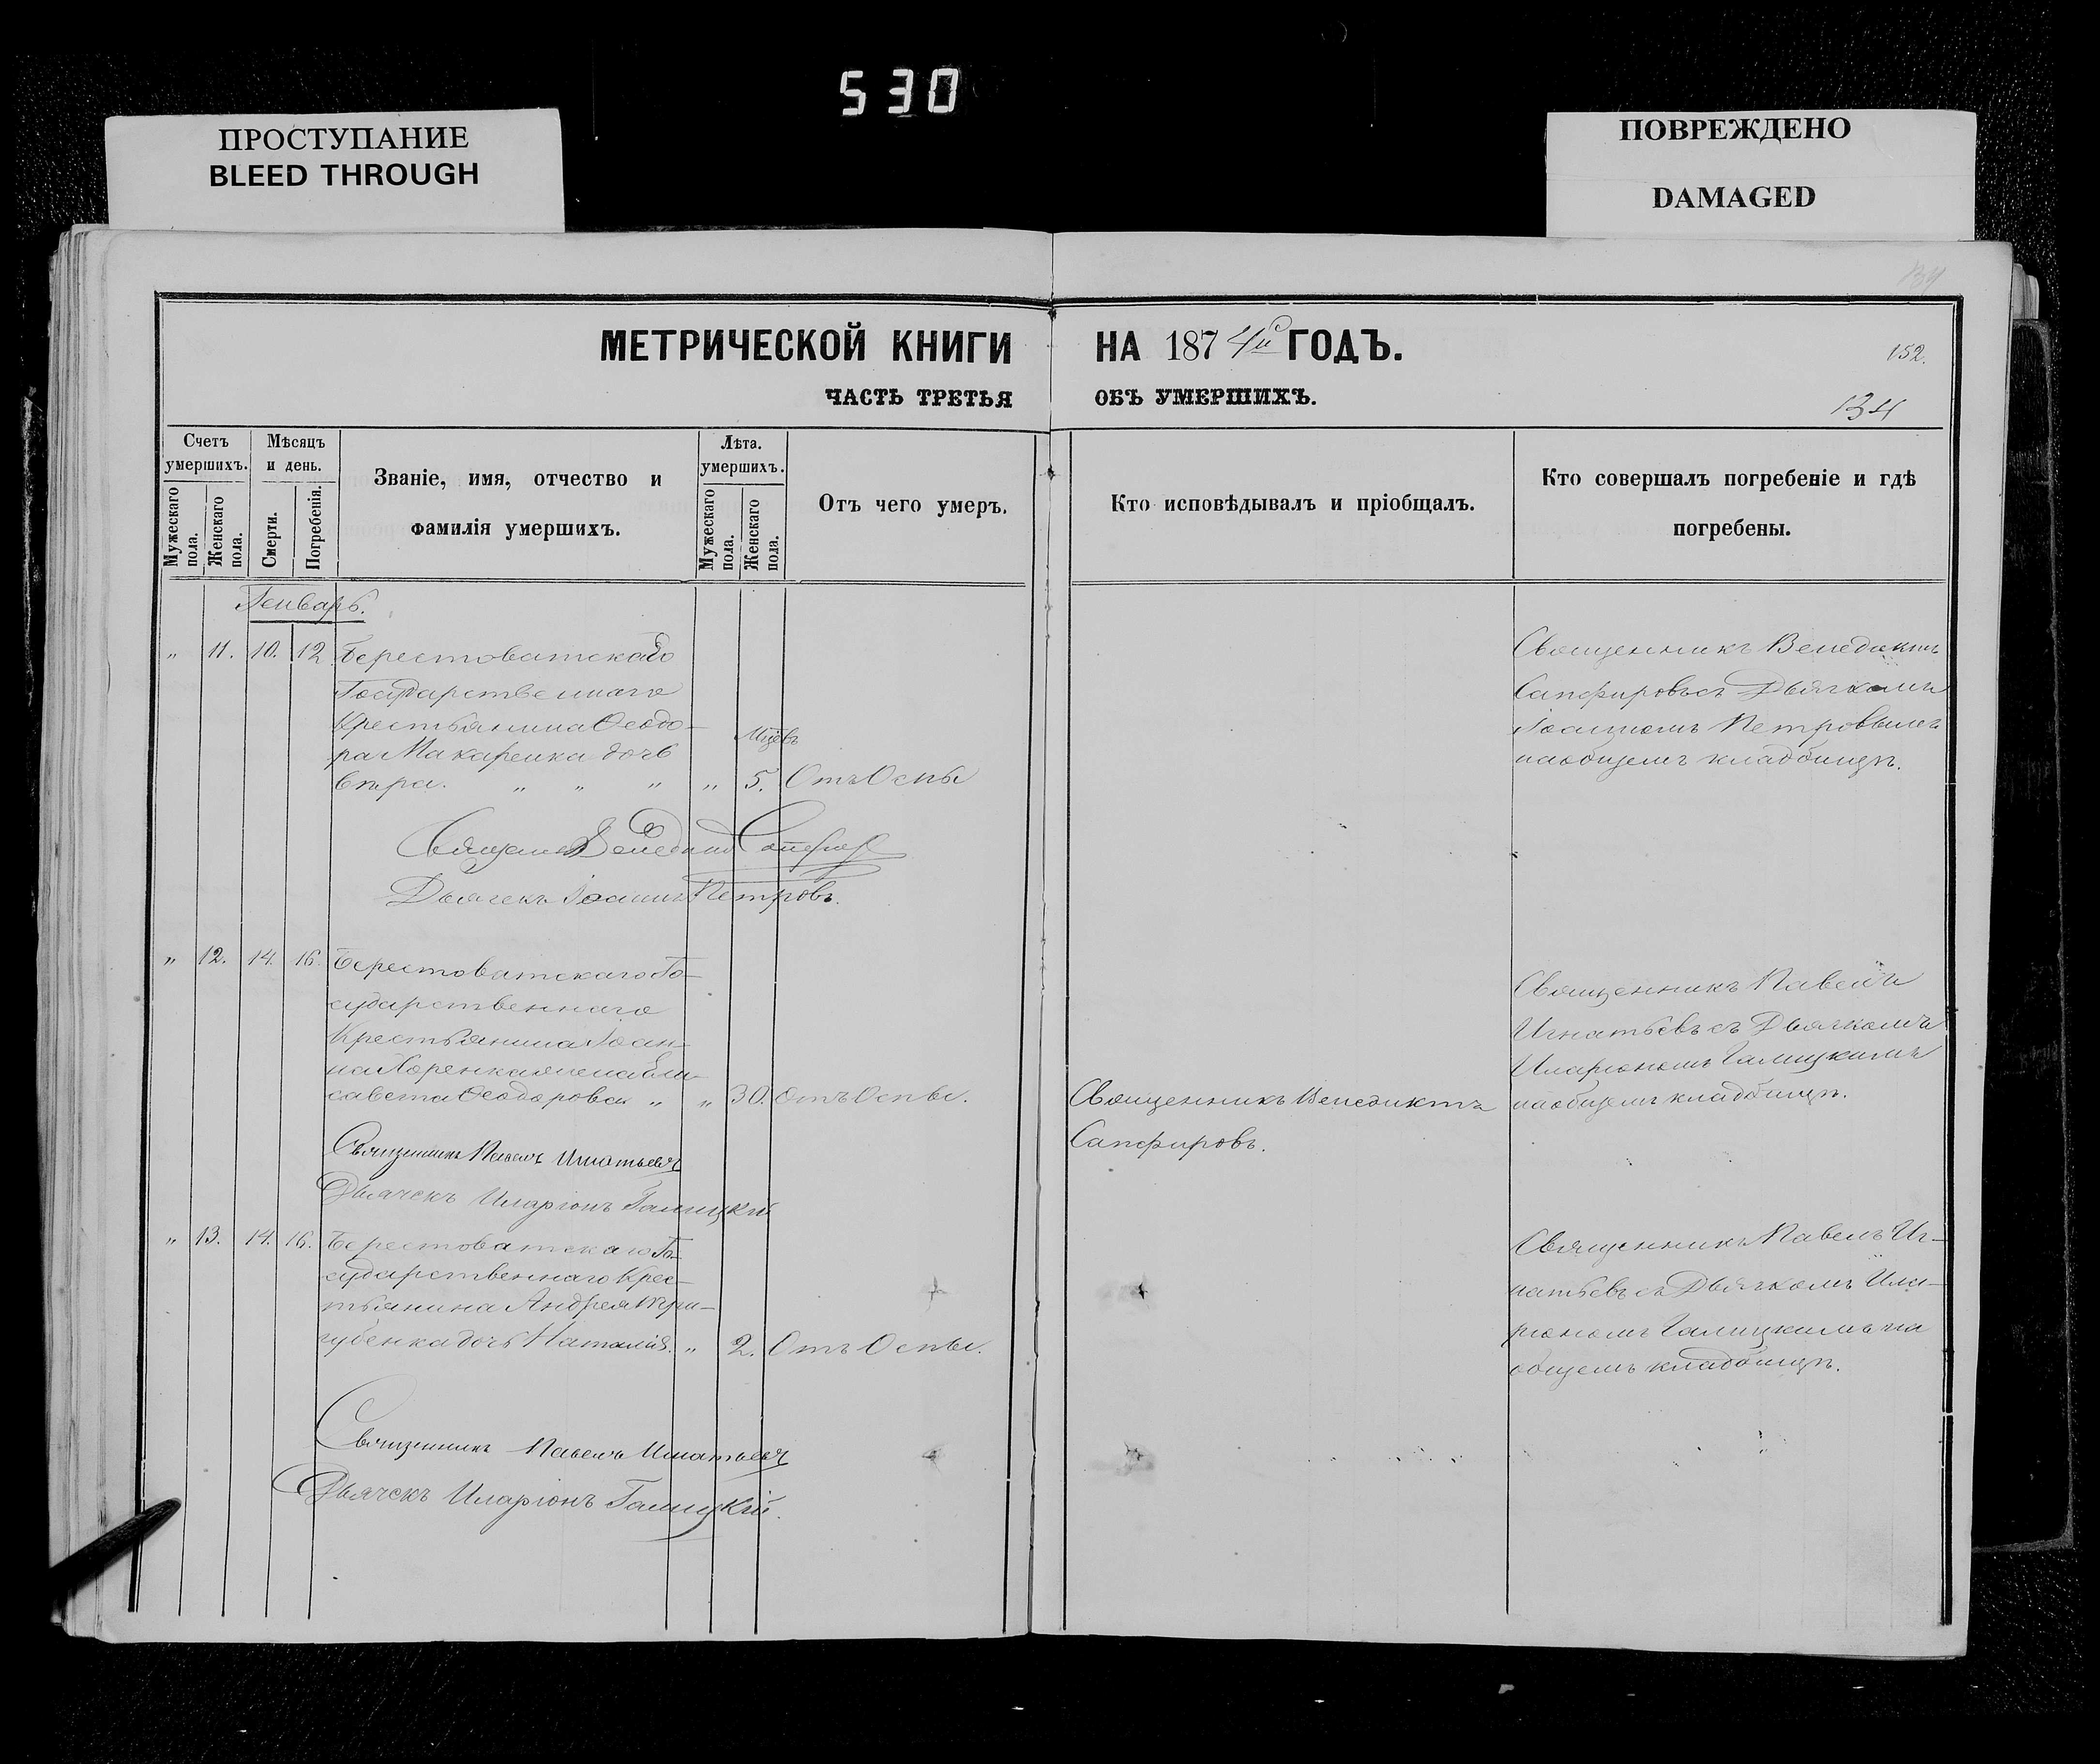 530
ПРОСТУПАНИЕ
BLEED THROUGH
ПОВРЕЖДЕНО
DAMAGED
МЕТРИЧЕСКОЙ КНИГИ
НА 1874й ГОДЪ.
152.
ЧАСТЬ ТРЕТЬЯ
ОБЪ УМЕРШИХЪ.
134
Счетъ умершихъ.
Мужескаго пола.
Женскаго пола.
Мѣсяцъ и день.
Смерти.
Погребенія.
Званіе, имя, отчество и
фамилія умершихъ.
Лѣта.
умершихъ.
Мужескаго пола.
Женскаго пола.
Отъ чего умеръ.
Кто исповѣдывалъ и пріобщалъ.
Кто совершалъ погребеніе и гдѣ
погребены.
Генварь.
„ 11. 10. 12 Берестоватскаго
Государственнаго
Крестьянина Ѳеодо-
ра Макаренка дочь
Вѣра. „ „ „ „ Мцевъ 5. Отъ Оспы
Священникъ Венедиктъ
Сапфировъ съ Дьячкомъ
Іоанномъ Петровымъ
на общемъ кладбищѣ.
Священникъ Венедиктъ Сапфировъ
Дьячекъ Іоаннъ Петровъ.
„ 12. 14. 16. Берестоватскаго Го-
сударственнаго
Крестьянина Іоан-
на Хоренка жена Ели-
савета Ѳеодоровна „ „ 30. Отъ Оспы.
Священникъ Венедиктъ
Сапфировъ.
Священникъ Павелъ
Игнатьевъ съ Дьячкомъ
Иларіономъ Галицкимъ
на общемъ кладбищѣ.
Священникъ Павелъ Игнатьевъ
Дьячекъ Иларіонъ Галицкій
„ 13. 14. 16. Берестоватскаго Го-
сударственнаго Крес-
тьянина Андрея
губенка дочь Наталія. „ 2. Отъ Оспы.
Священникъ Павелъ Иг-
натьевъ съ Дьячкомъ Ила-
ріономъ Галицкимъ на
общемъ кладбищѣ.
Священникъ Павелъ Игнатьевъ
Дьячекъ Иларіонъ Галицкій.